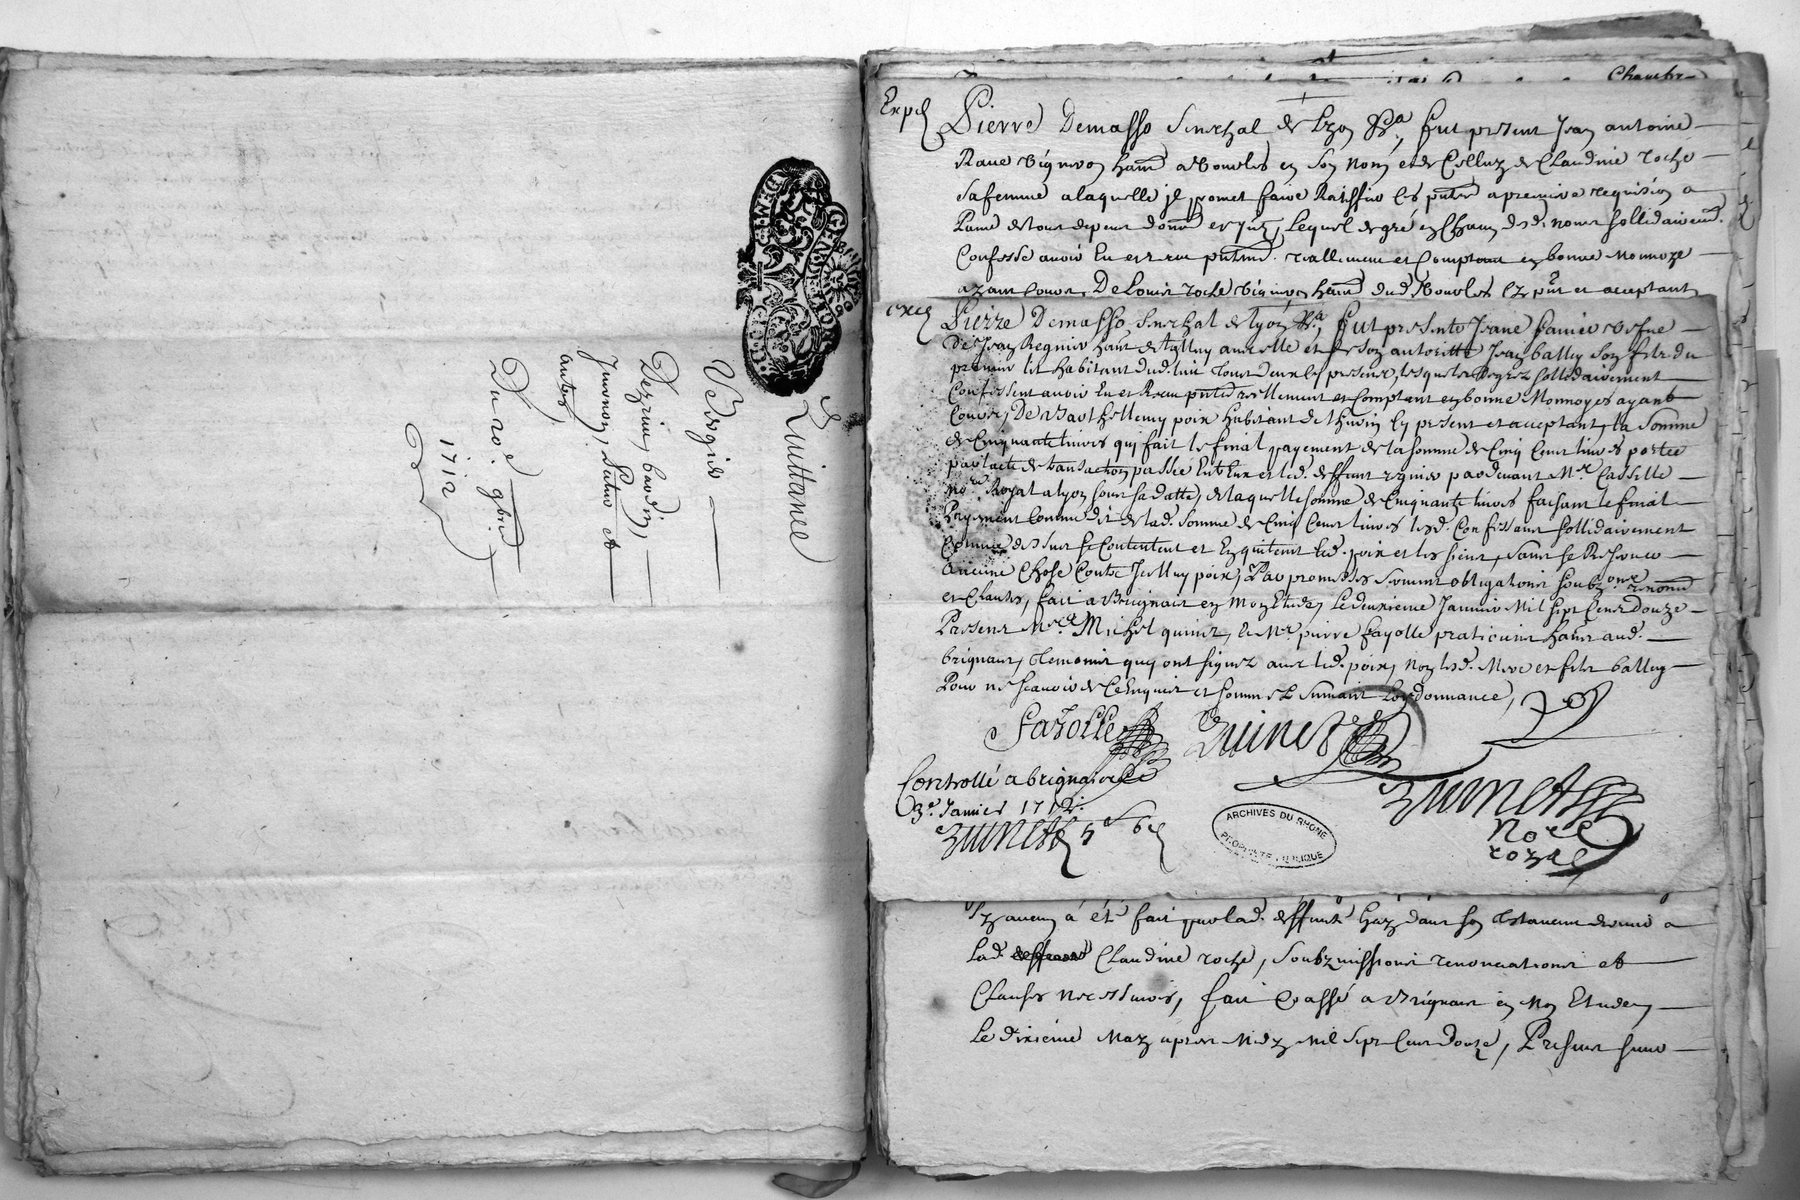 Quittance
Vergier
Dezrieu, baudin,
Juvenon, Satur et
autres
Du 20e 9bre
1712
Chambre
Exped Pierre Demasso Senechal de Lyon &a, fut present Jean antoine
Rave Vigneron habt a Vourles en son nom et de Celluy de Claudine roche
Safemme alaquelle jl promet faire Ratiffier les putes apremiere requision a
Paine detous depens dom. et Jnt, Lequel degré esd. noms sollidairemt.
Confesse avoir Eu et receu putemt. reallement et Comptant en bonne Monnoye
ayant Cours, De Louis roche Vigneron habt dud Vourles Cy pnt et acceptant
exed Pierre Demasso, Senechal de lyon &a, fut presente Jeane Garnier vefve
De Jean Regnier habt de et de Son autoritté Jean balley Son fils du
premier lit habitant dud. lieu Tous deux Cy presens, lesquels Degrez sollidairement
Confessent avoir Eu et Receu putemt reellement et Comptant en bonne Monnoye ayant
Cours, De Barthellemy poix habitant de thurin Cy present et acceptant, la Somme
de Cinquante livres quy fait le final payement de la somme de Cinq Cens livres portée
par lacte de transaction passée Entreux et led. deffunt regnier pardevant Mr. Casselle
Nore Royal alyon sous sa datte, de laquelle somme de Cinquante livres faisant le final
Payement Comme dit de lad. Somme de Cinq Cens livres lesd. Confessans sollidairement
Comme dessus se Contentent et Enquitent led. poix et les siens, sans se Reserver
Aucune Chose Contre Jcelluy poix, Par promesses serment obligations soubzons renond
et Clauses, fait a Brignais en Mon Etude, Le deuxieme Janvier Mil Sept Cens Douze
Presens Mre Michel quinet, & Mr. pierre fayolle praticiens habts aud.
brignais, temoins quy ont signez avec led. poix, Non lesd. Mere et fils balley
Pour ne scavoir de Ce Enquis et sommez Suivant Lordonnance,
Fayolle Quinet
Controllé a brignais le
3e. Janvier 1712.
Quinet
Quinet
Nore
royal
ARCHIVES DU RHONE
PROPRIETE PUBLIQUE
Cy aucun a été fait par lad. deffunte dans son testament
Lad. Claudine roche, Soubzmissions renonciations et
Clauses necessaires, fait & passé a Brignais en Mon Etude,
Le dixiéme May apres Midy Mil Sept Cens Douze, Presens sieur